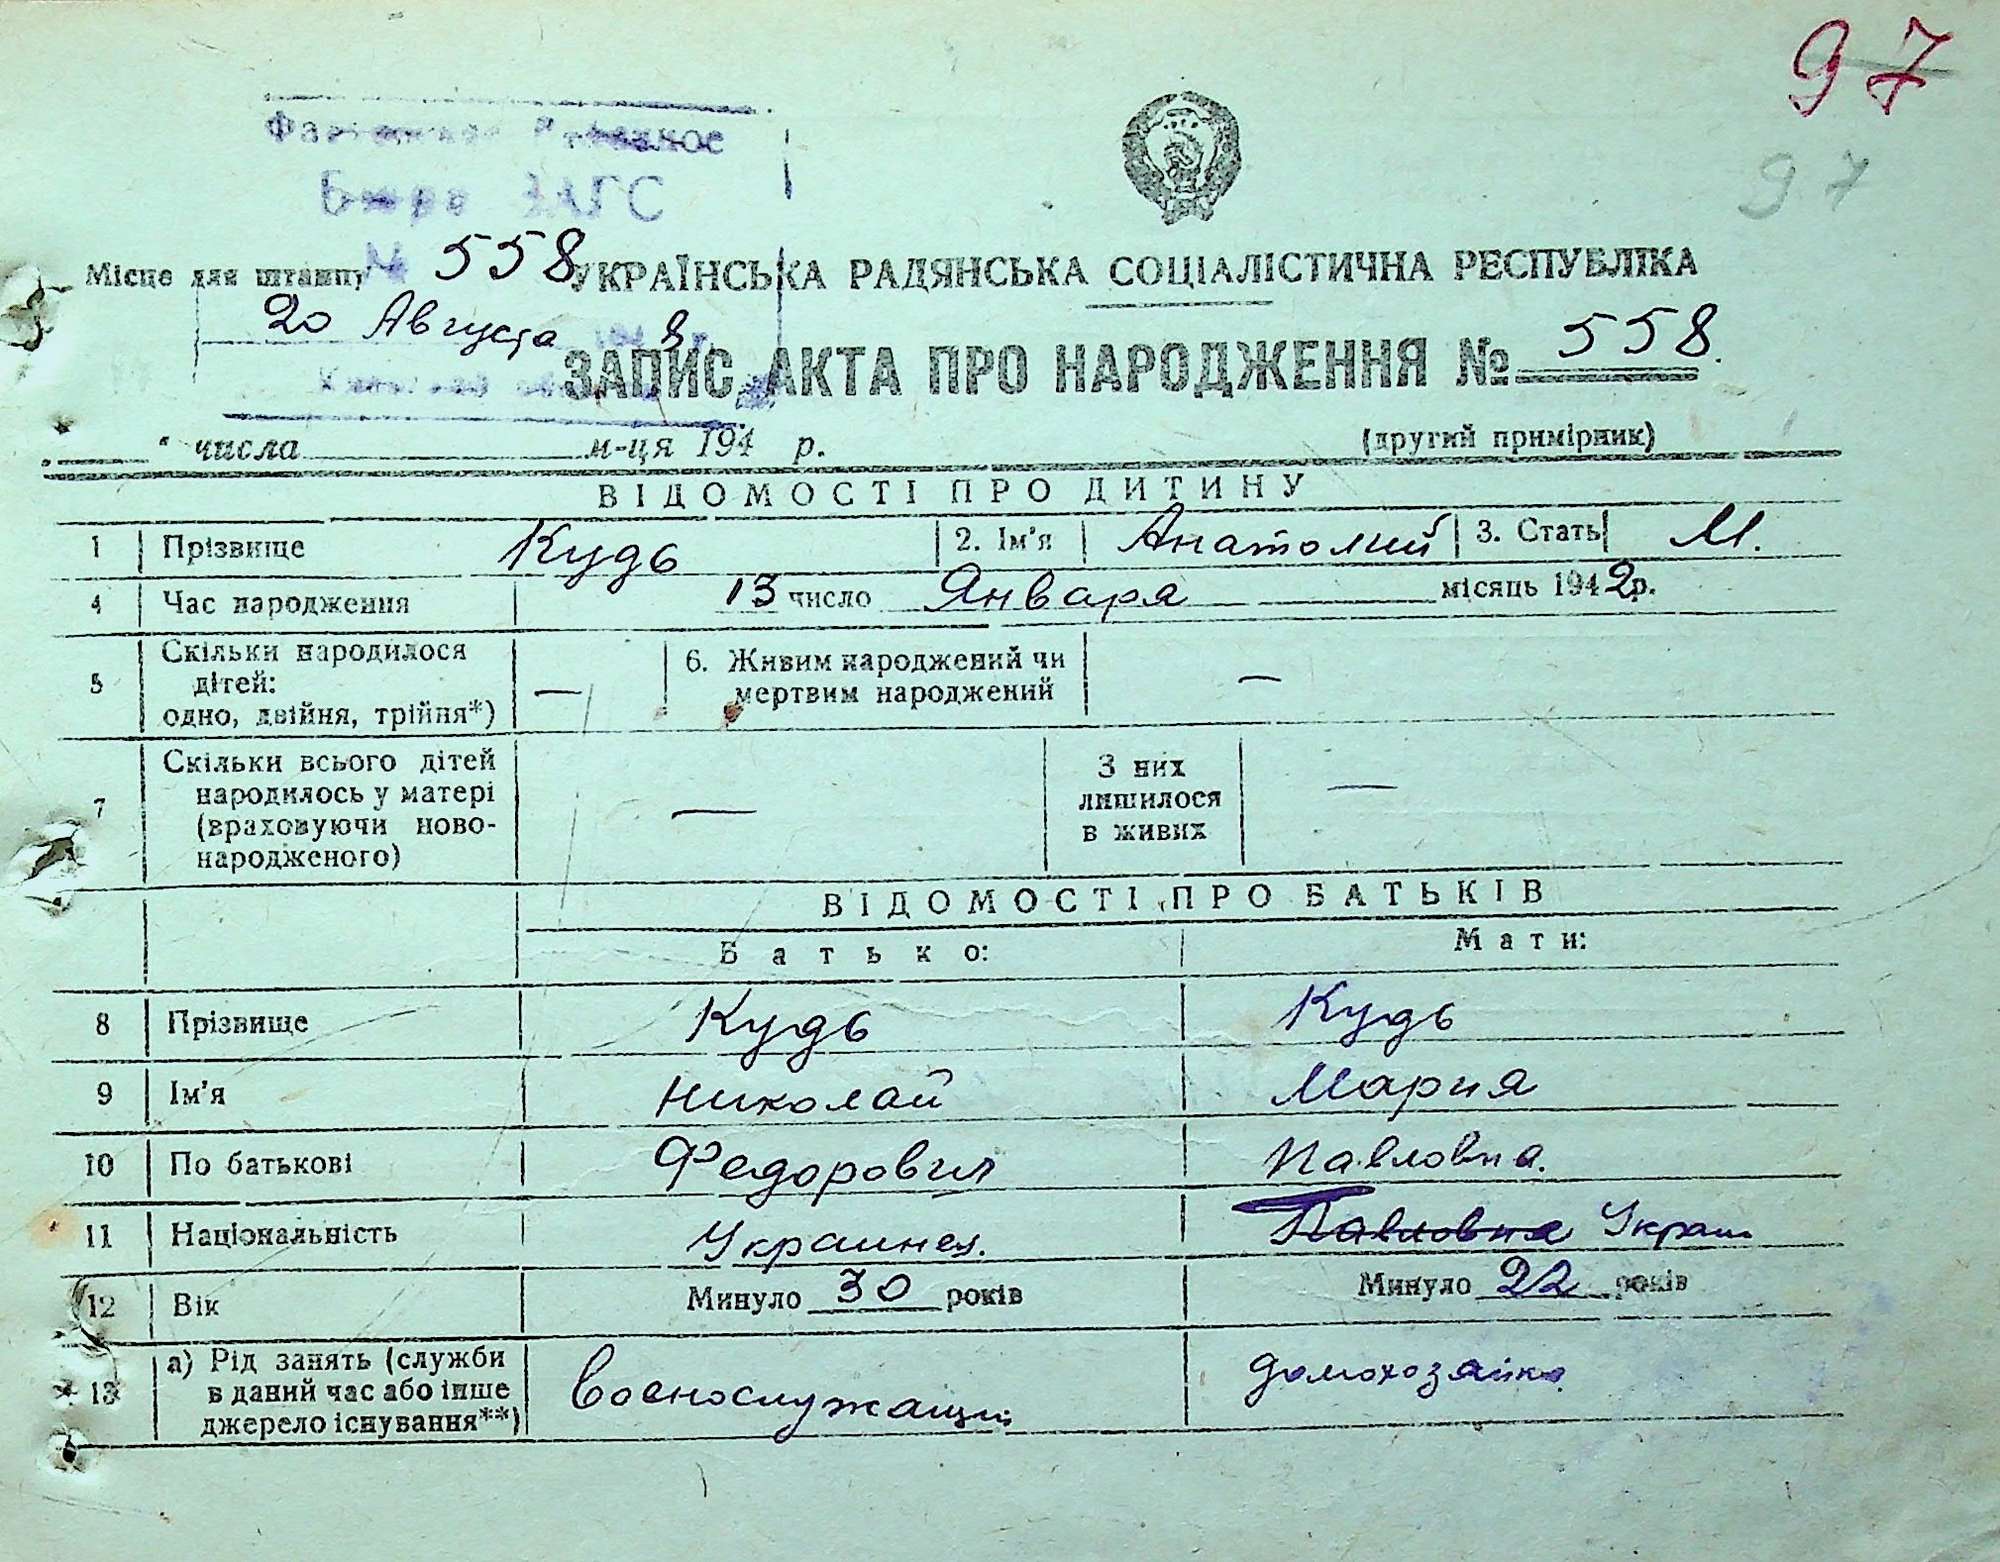 97
97
Бюро ЗАГС
Місце для штампу № 558
УКРАЇНСЬКА РАДЯНСЬКА СОЦІАЛІСТИЧНА РЕСПУБЛІКА
20 Августа 1948 г.
ЗАПИС АКТА ПРО НАРОДЖЕННЯ № 558.
" числа м-ця 194 р.
(другий примірник)
ВІДОМОСТІ ПРО ДИТИНУ
1 Прізвище Кудь 2. Ім'я Анатолий 3. Стать М.
4 Час народження 13 число Января місяць 1942р.
5 Скільки народилося дітей: одно, двійня, трійня*) — 6. Живим народжений чи мертвим народжений —
7 Скільки всього дітей народилось у матері (враховуючи ново-народженого) — З них лишилося в живих —
ВІДОМОСТІ ПРО БАТЬКІВ
Батько: Мати:
8 Прізвище Кудь Кудь
9 Ім'я Николай Мария
10 По батькові Федорович Павловна.
11 Національність Украинец. Павловна Украин
12 Вік Минуло 30 років Минуло 22 років
13 а) Рід занять (служби в даний час або інше джерело існування**) Военослужащий домохозяйка